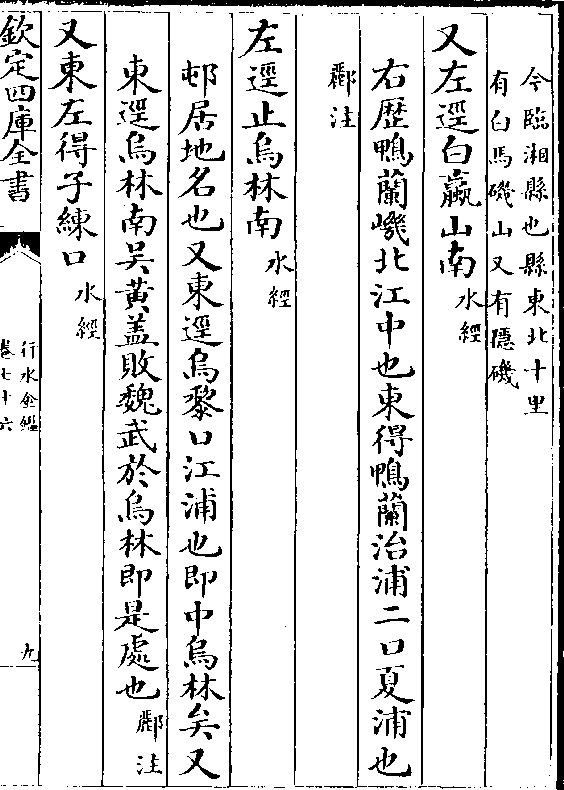 今臨湘縣也縣東北十里
有白馬磯山又有隱磯
又左逕白蠃山南水經
右歷鴨蘭磯北江中也東得鴨蘭治浦二口夏浦也
酈注
左逕止烏林南水經
邨居地名也又東逕烏黎口江浦也即中烏林矣又
東逕烏林南吳黃盖敗魏武於烏林即是處也酈注
又東左得子練口水經
欽定四庫全書
行水金鑑
卷七十六
九